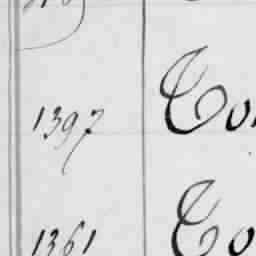 1397 Co
1361 Co